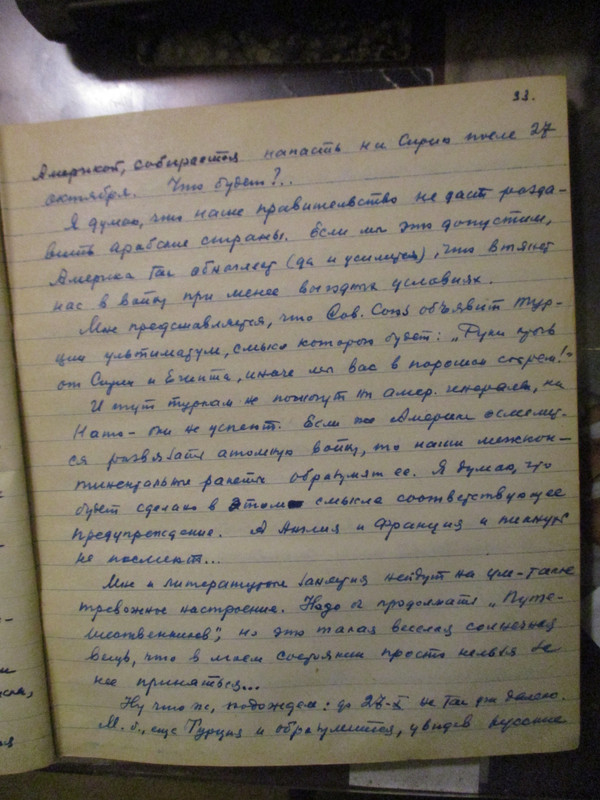 33.
Америкой, собирается напасть на Сирию после 27
октября. Что будет?..
Я думаю, что наше правительство не даст разда-
вить арабские страны. Если мы это допустим,
Америка так обнаглеет (да и усилится), что втянет
нас в войну при менее выгодных условиях.
Мне представляется, что Сов. Союз объявит Тур-
ции ультиматум, смысл которого будет: „Руки прочь
от Сирии и Египта, иначе мы вас в порошок сотрем!"
И тут туркам не помогут ни амер. генералы, ни
Нато - они не успеют. Если же Америка осмелит-
ся развязать атомную войну, то наши межкон-
тинентальные ракеты образумят ее. Я думаю, что
будет сделано в этом смысле соответствующее
предупреждение. А Англия и Франция и пикнуть
не посмеют...
Мне и литературные занятия нейдут на ум - такое
тревожное настроение. Надо б продолжать „Путе-
шественников", но это такая веселая солнечная
вещь, что в моем состоянии просто нельзя за
нее приняться...
Ну что ж, подождем: до 27-X не так уж далеко.
М. б., еще Турция и образумится, увидев русские